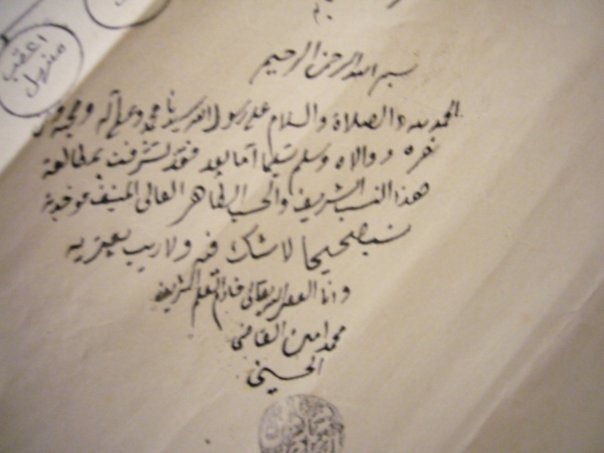 اعقب
منهل
بسم الله الرحمن الرحيم
الحمد لله والصلاة والسلام على رسول الله سيدنا محمد وعلى آله وصحبه ومن
نصره ووالاه وسلم تسليما اما بعد فقد تشرفت بمطالعة
هذا النسب الشريف والحسب الطاهر العالي المنيف فوجدته
نسبا صحيحا لا شك فيه ولا ريب يعتريه
وانا الفقير اليه تعالى خادم العلم الشريف
محمد امين القاضي
الحسيني